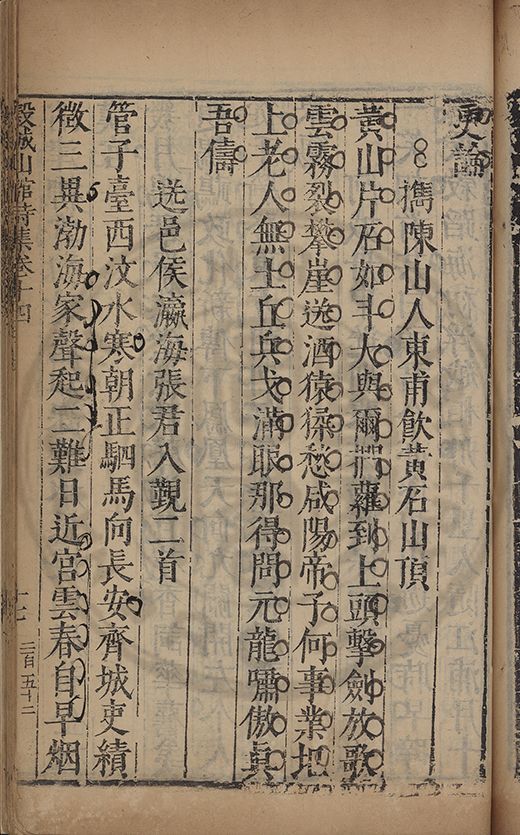 更論
攜陳山人東甫飲黃石山頂
黃山片石如斗大與爾捫蘿到上頭擊劍放歌
雲霧裂攀崖送酒猿猱愁咸陽帝子何事業圯
上老人無土丘兵戈滿眼那得問元龍嘯傲眞
吾儔
送邑侯瀛海張君入覲二首
管子臺西汶水寒朝正駟馬向長安齊城吏績
徵三異渤海家聲起二難日近宮雲春自早烟
穀城山館詩集卷十四
十七
二百五十二